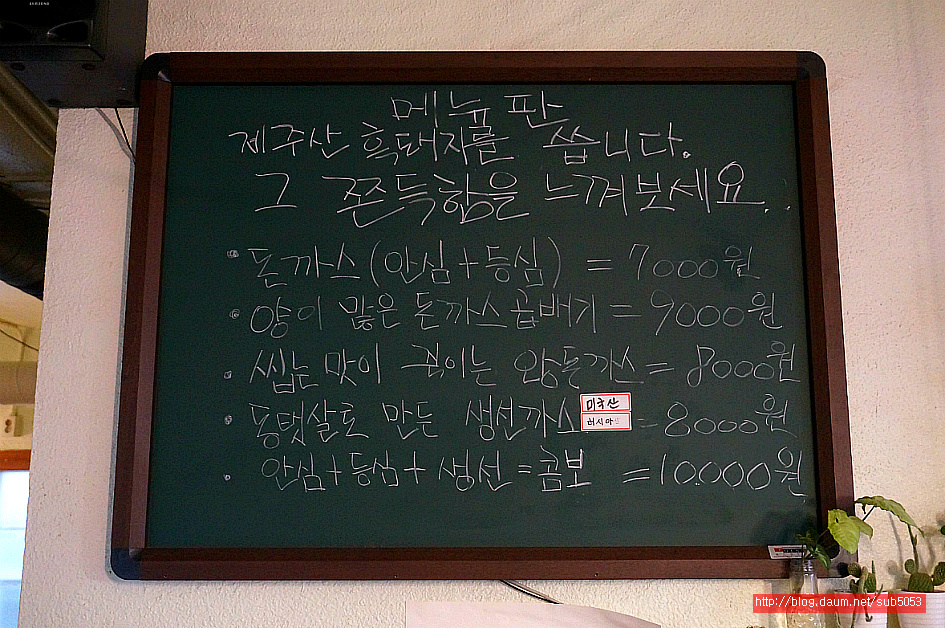 메뉴판
제주산 흑돼지를 씁니다.
그 존득함을 느껴보세요...
• 돈까스(안심+등심) = 7000원
• 양이 많은 돈까스곱배기 = 9000원
• 씹는 맛이 죽이는 왕돈까스 = 8000원
• 동탯살로 만든 생선까스 미국산 = 8000원
러시아
• 안심+등심+생선=콤보 =10.000원
http://blog.daum.net/sub5053